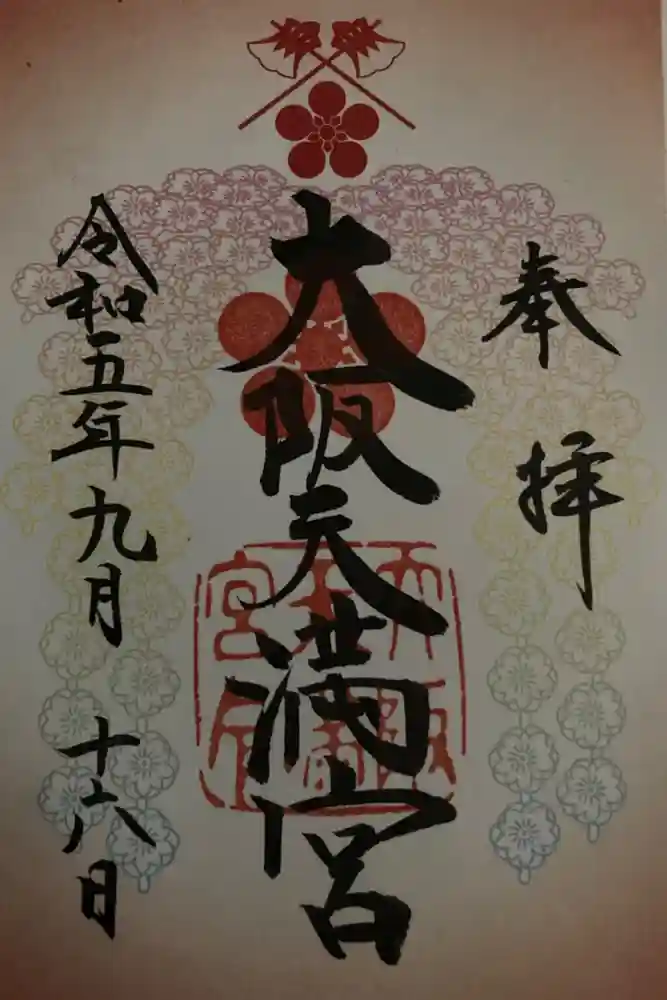 奉拝
大阪天満宮
令和五年九月十六日